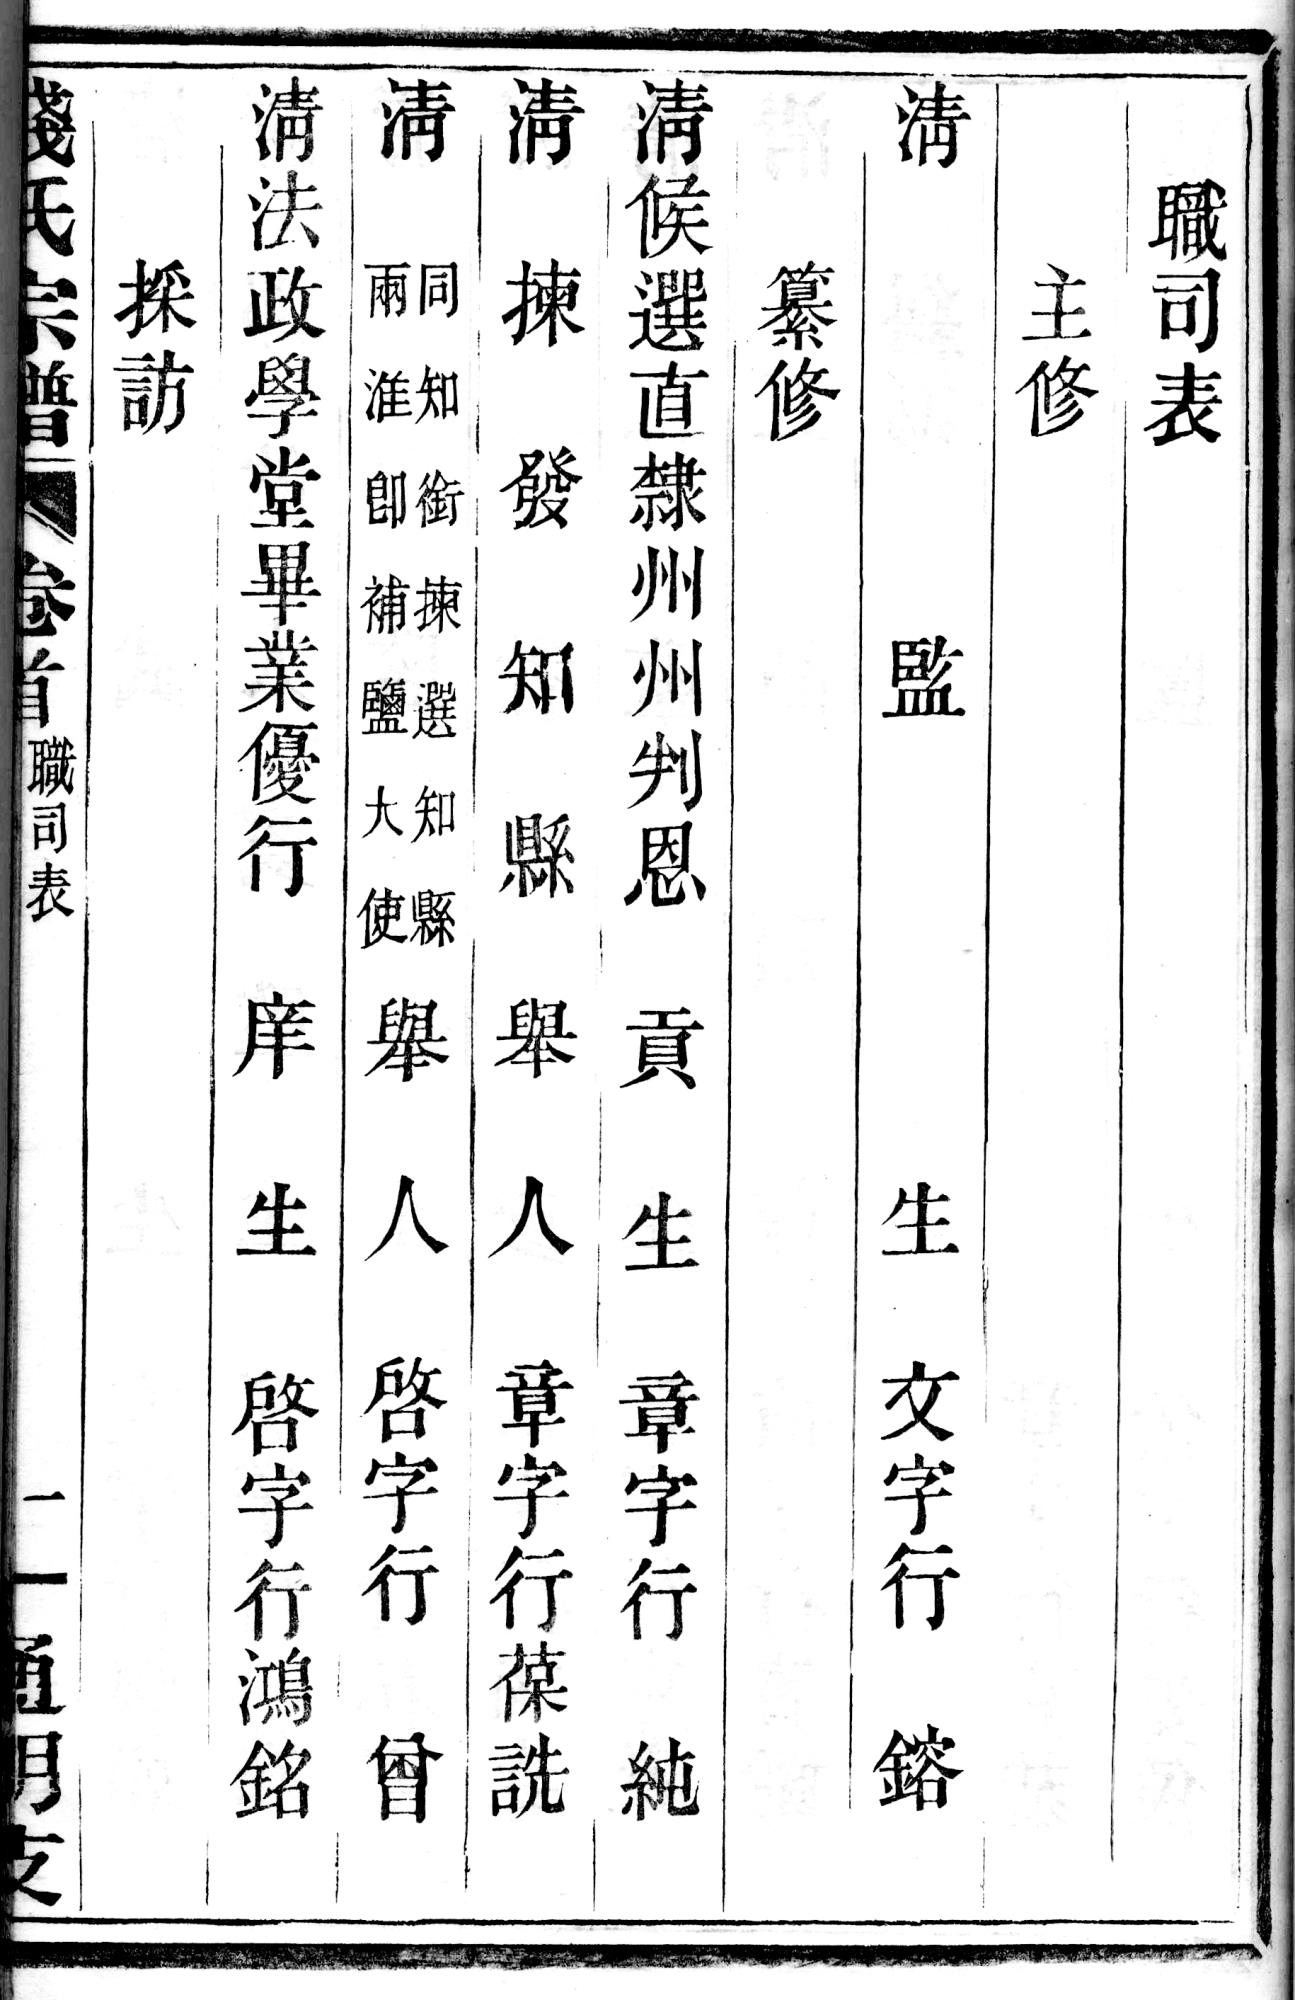 職司表
主修
淸監生文字行鎔
纂修
淸候選直隸州州判恩貢生章字行純
淸揀發知縣舉人章字行葆詵
淸同知銜揀選知縣
兩淮卽補鹽大使
舉人啓字行曾
淸法政學堂畢業優行庠生啓字行鴻銘
採訪
錢氏宗譜
卷首
職司表
一
通明支